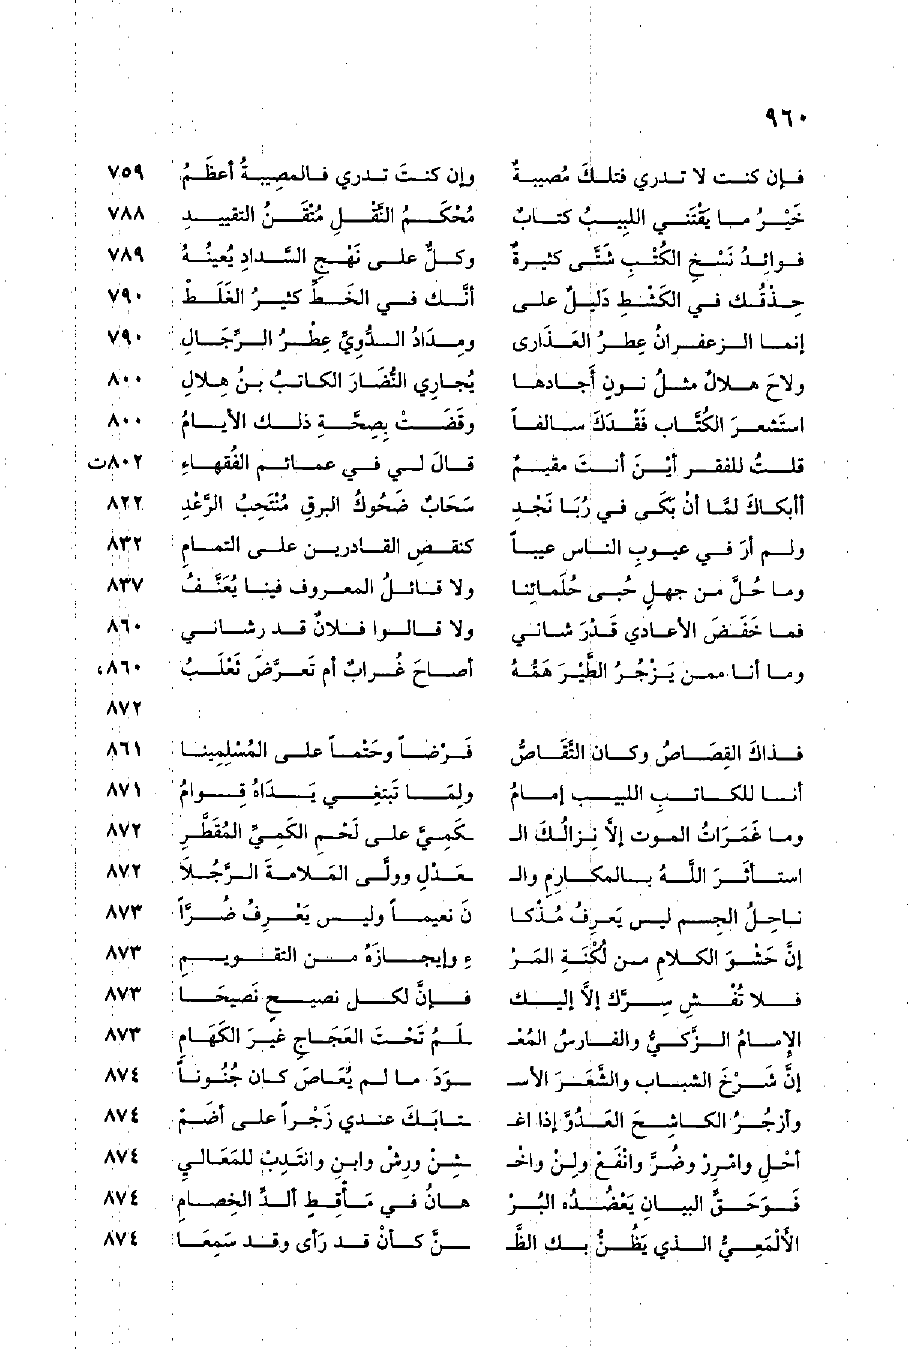 ٩٦٠
فإن كنت لا تدري فتلك مصيبةٌ وإن كنت تدري فالمصيبة أعظمُ ٧٥٩
خيرُ ما يقتني اللبيب كتابٌ مُحكم النقل متقن التقييد ٧٨٨
فوائدُ نسخ الكتب شتى كثيرةٌ وكلٌّ على نهج السداد يُعينُه ٧٨٩
حذقك في الكشط دليلٌ على أنّك في الخط كثيرُ الغلط ٧٩٠
إنما الزعفران عطر العذارى ومداد الدويّ عطرُ الرّجال ٧٩٠
ولاح هلالٌ مثل نون أجادها يُجاري النُّضار الكاتبُ بن هلال ٨٠٠
استشعر الكُتّاب فقدك سالفاً وقضت بصحة ذلك الأيامُ ٨٠٠
قلت للفقر أين أنت مقيمٌ قال لي في عمائم الفُقهاء ٨٠٢ت
أأبكاك لمّا أن بكى في رُبا نجد سحابٌ ضحوك البرق مُنتحبُ الرَّعد ٨٢٢
ولم أرَ في عيوب الناس عيباً كنقص القادرين على التمام ٨٣٢
وما حُلَّ من جهل حُبى حُلمائنا ولا قائلُ المعروف فينا يُعنَّفُ ٨٣٧
فما خفض الأعادي قدر شاني ولا قالوا فلانٌ قد رشاني ٨٦٠
وما أنا ممن يزجرُ الطَّيرَ همُّهُ أصاح غرابٌ أم تعرّض ثعلبُ ٨٦٠،
٨٧٢
فذاك القصاصُ وكان التّقاصُّ فرضاً وحتماً على المُسلمينا ٨٦١
أنا للكاتب اللبيب إمامُ ولما تبتغي يداهُ قوامُ ٨٧١
وما غمراتُ الموت إلا نزالك الـ ـكميّ على لحم الكميّ المُقطّر ٨٧٢
استأثر الله بالمكارم والـ ـعدل وولّى الملامة الرّجلا ٨٧٢
ناحلُ الجسم ليس يعرف مُذ كا ن نعيماً وليس يعرف ضُرّاً ٨٧٣
إنَّ حشو الكلام من لُكنة المر ء وإيجازهُ من التقويم ٨٧٣
فلا تُفش سرّك إلا إليك فإنّ لكل نصيح نصيحا ٨٧٣
الإمامُ الزّكيُّ والفارسُ المُعْـ ـلم تحت العجاج غيرُ الكهام ٨٧٣
إنّ شرخ الشباب والشَّعَر الأسـ ـود ما لم يُعاصَ كان جُنُوناً ٨٧٤
وأزجُرُ الكاشح العدوّ إذا اغـ ـتابك عندي زجراً على أضمِ ٨٧٤
احلُ وامرُر وضُرّ وانفع ولِن واخـ ـشن ورش وابرِ وانتدب للمعالي ٨٧٤
فوحقّ البيان يعضُدُه البُر هانُ في مأقط ألدّ الخصام ٨٧٤
الألمعيُّ الذي يظُنُّ بك الظّـ ـنَّ كأن قد رأى وقد سمعا ٨٧٤